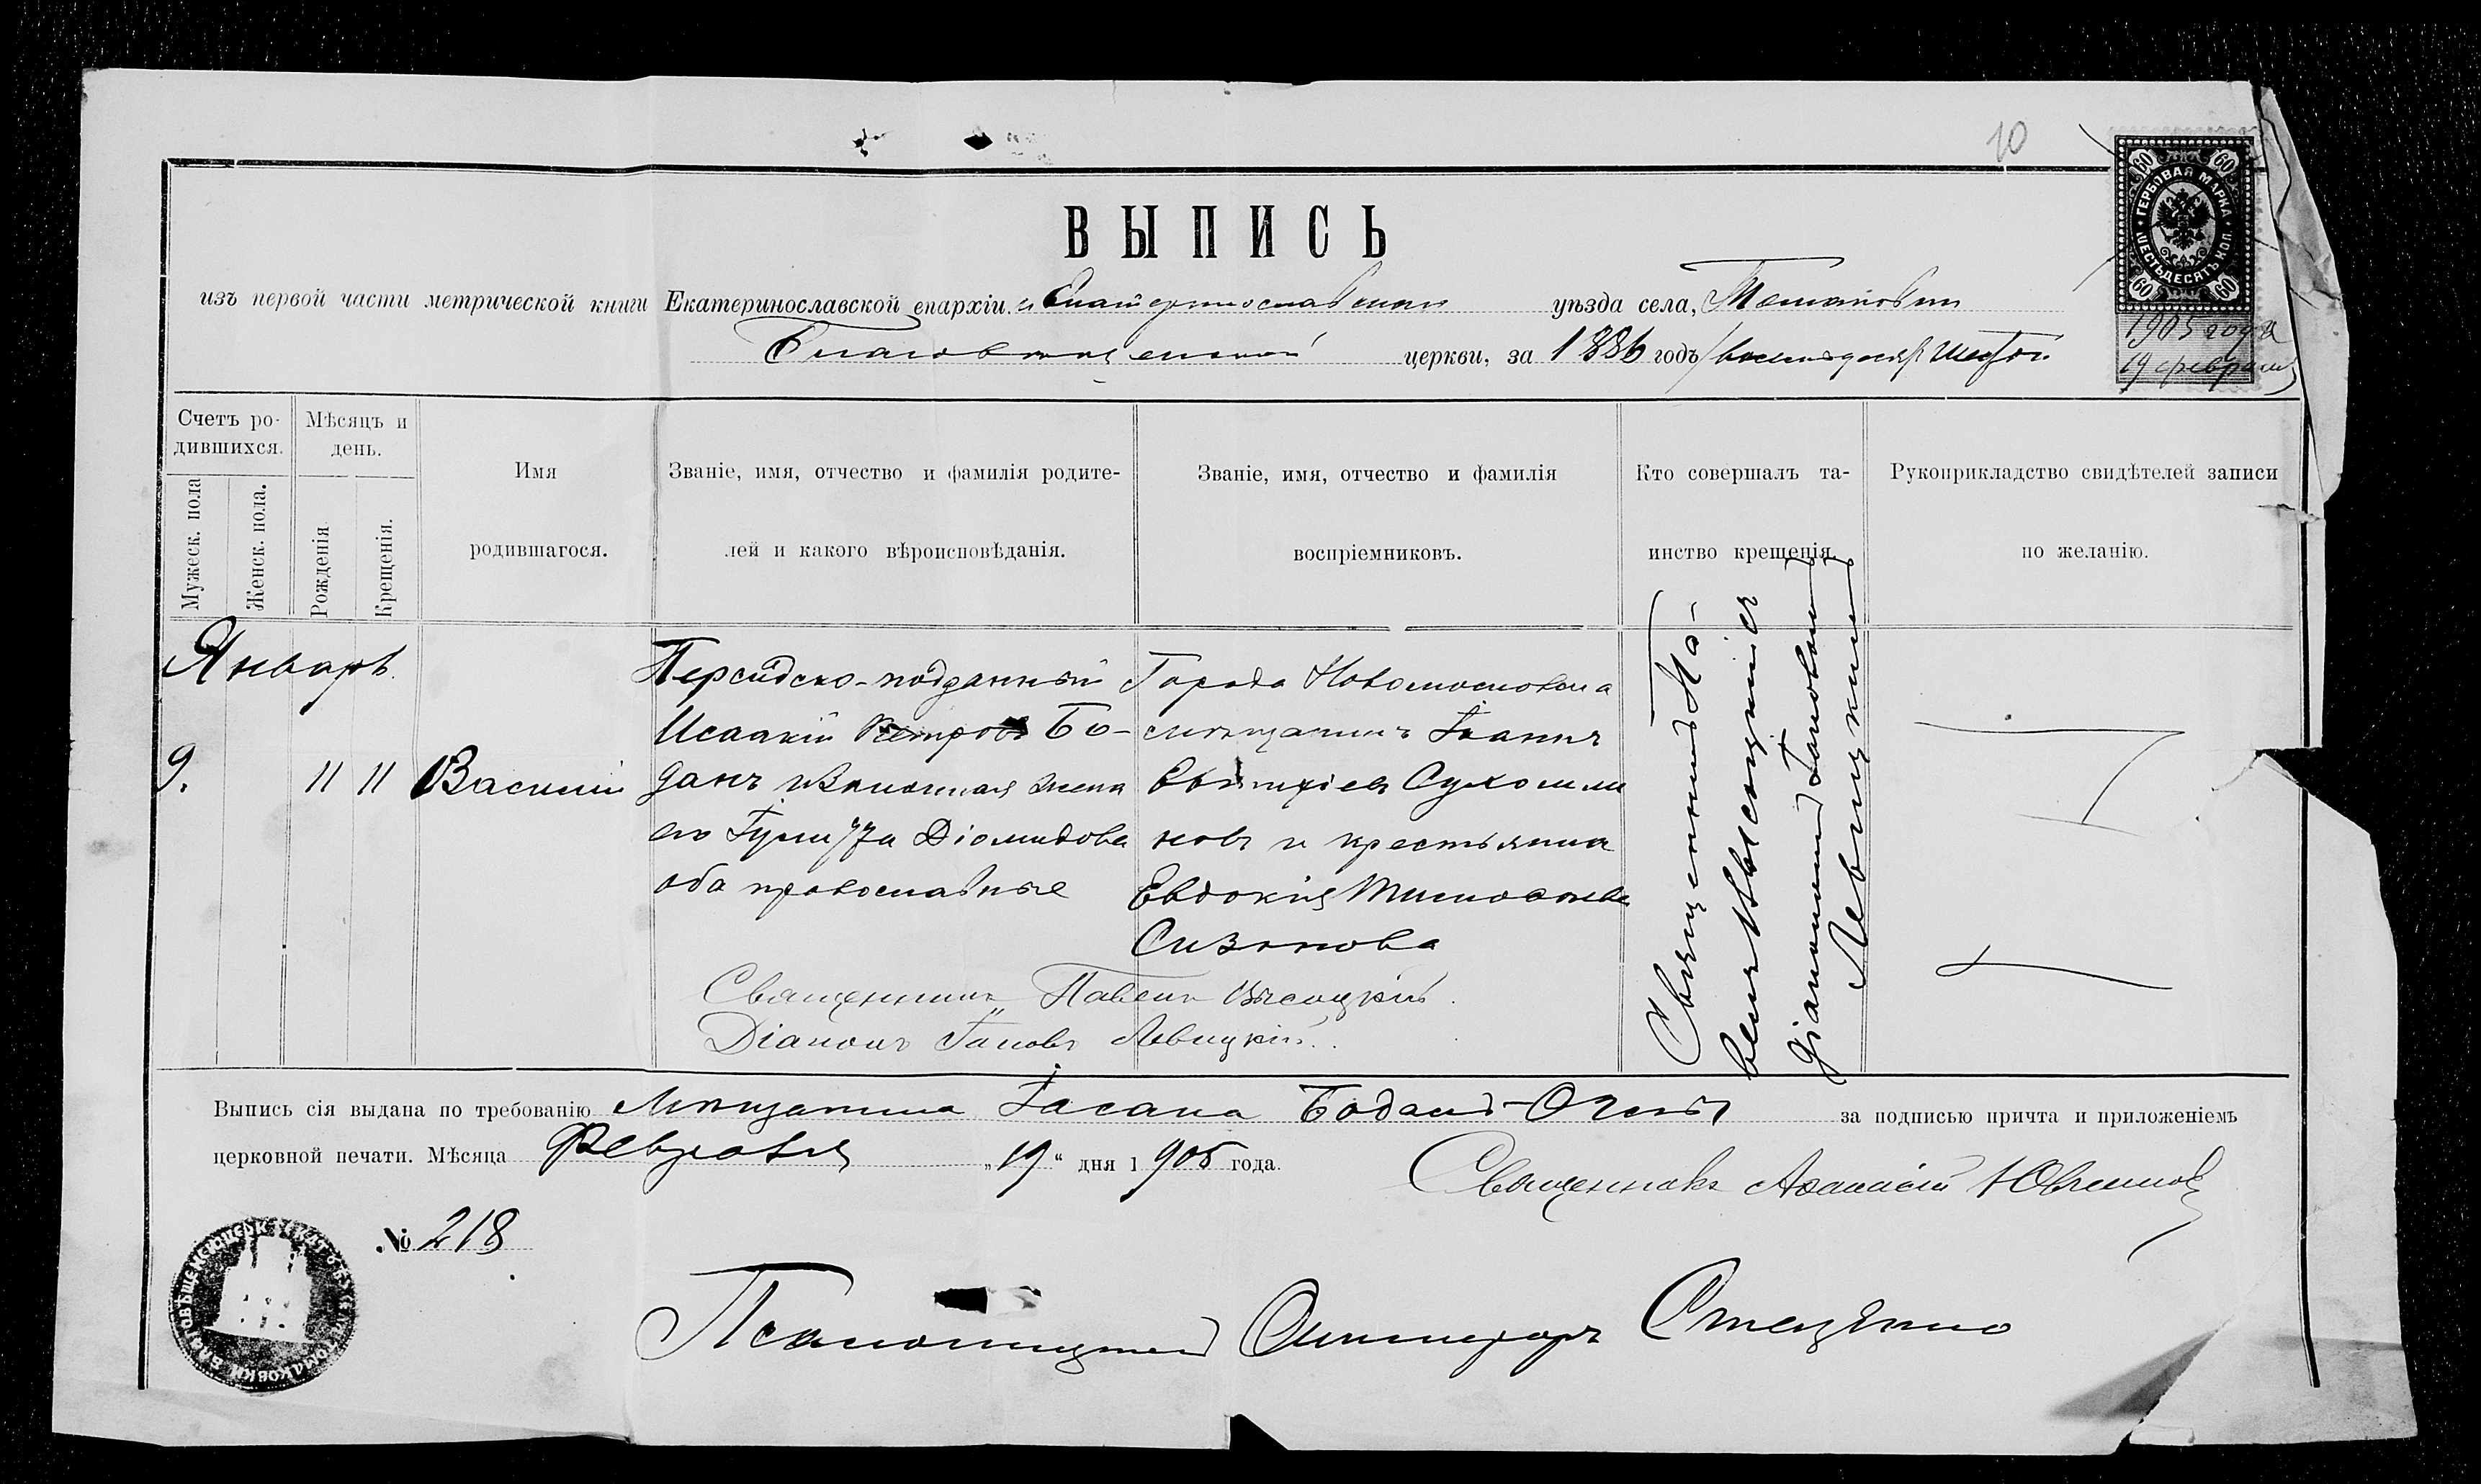 10
60 60
ГЕРБОВАЯ МАРКА
ШЕСТЬДЕСЯТЪ КОП.
60 60
1905 года
19 февраля
ВЫПИСЬ
изъ первой части метрической книги Екатеринославской епархіи и Екатеринославскаго уѣзда села, Томаковки
Благовѣщенской церкви, за 1886 годъ /восемьдесятъ шестой
Счетъ ро-
дившихся.
Мужеск. пола
Женск. пола.
Мѣсяцъ и
день.
Рожденія
Крещенія.
Имя
родившагося.
Званіе, имя, отчество и фамилія родите-
лей и какого вѣроисповѣданія.
Званіе, имя, отчество и фамилія
воспріемниковъ.
Кто совершалъ та-
инство крещенія.
Рукоприкладство свидѣтелей записи
по желанію.
Январь.
9.
11 11
Василій
Персидско-подданный
Исаакій Петровъ Бо-
данъ и законная жена
его Діомидова
оба православные
Города Новомосковска
мѣщанинъ Іоаннъ
Сухомли
новъ и крестьянка
Евдокія Тимофеева
Сизонова
Священникъ Па-
велъ Высоцкій съ
діакономъ Іаковомъ
Левицкимъ
Священникъ Павелъ Высоцкій.
Діаконъ Іаковъ Левицкій.
Выпись сія выдана по требованію мѣщанина Іасака Бодаръ-Оглы за подписью причта и приложеніемъ
церковной печати. Мѣсяца Февраля „19“ дня 1905 года.
Священникъ Аѳанасій
№ 218
Псаломщикъ Стеценко